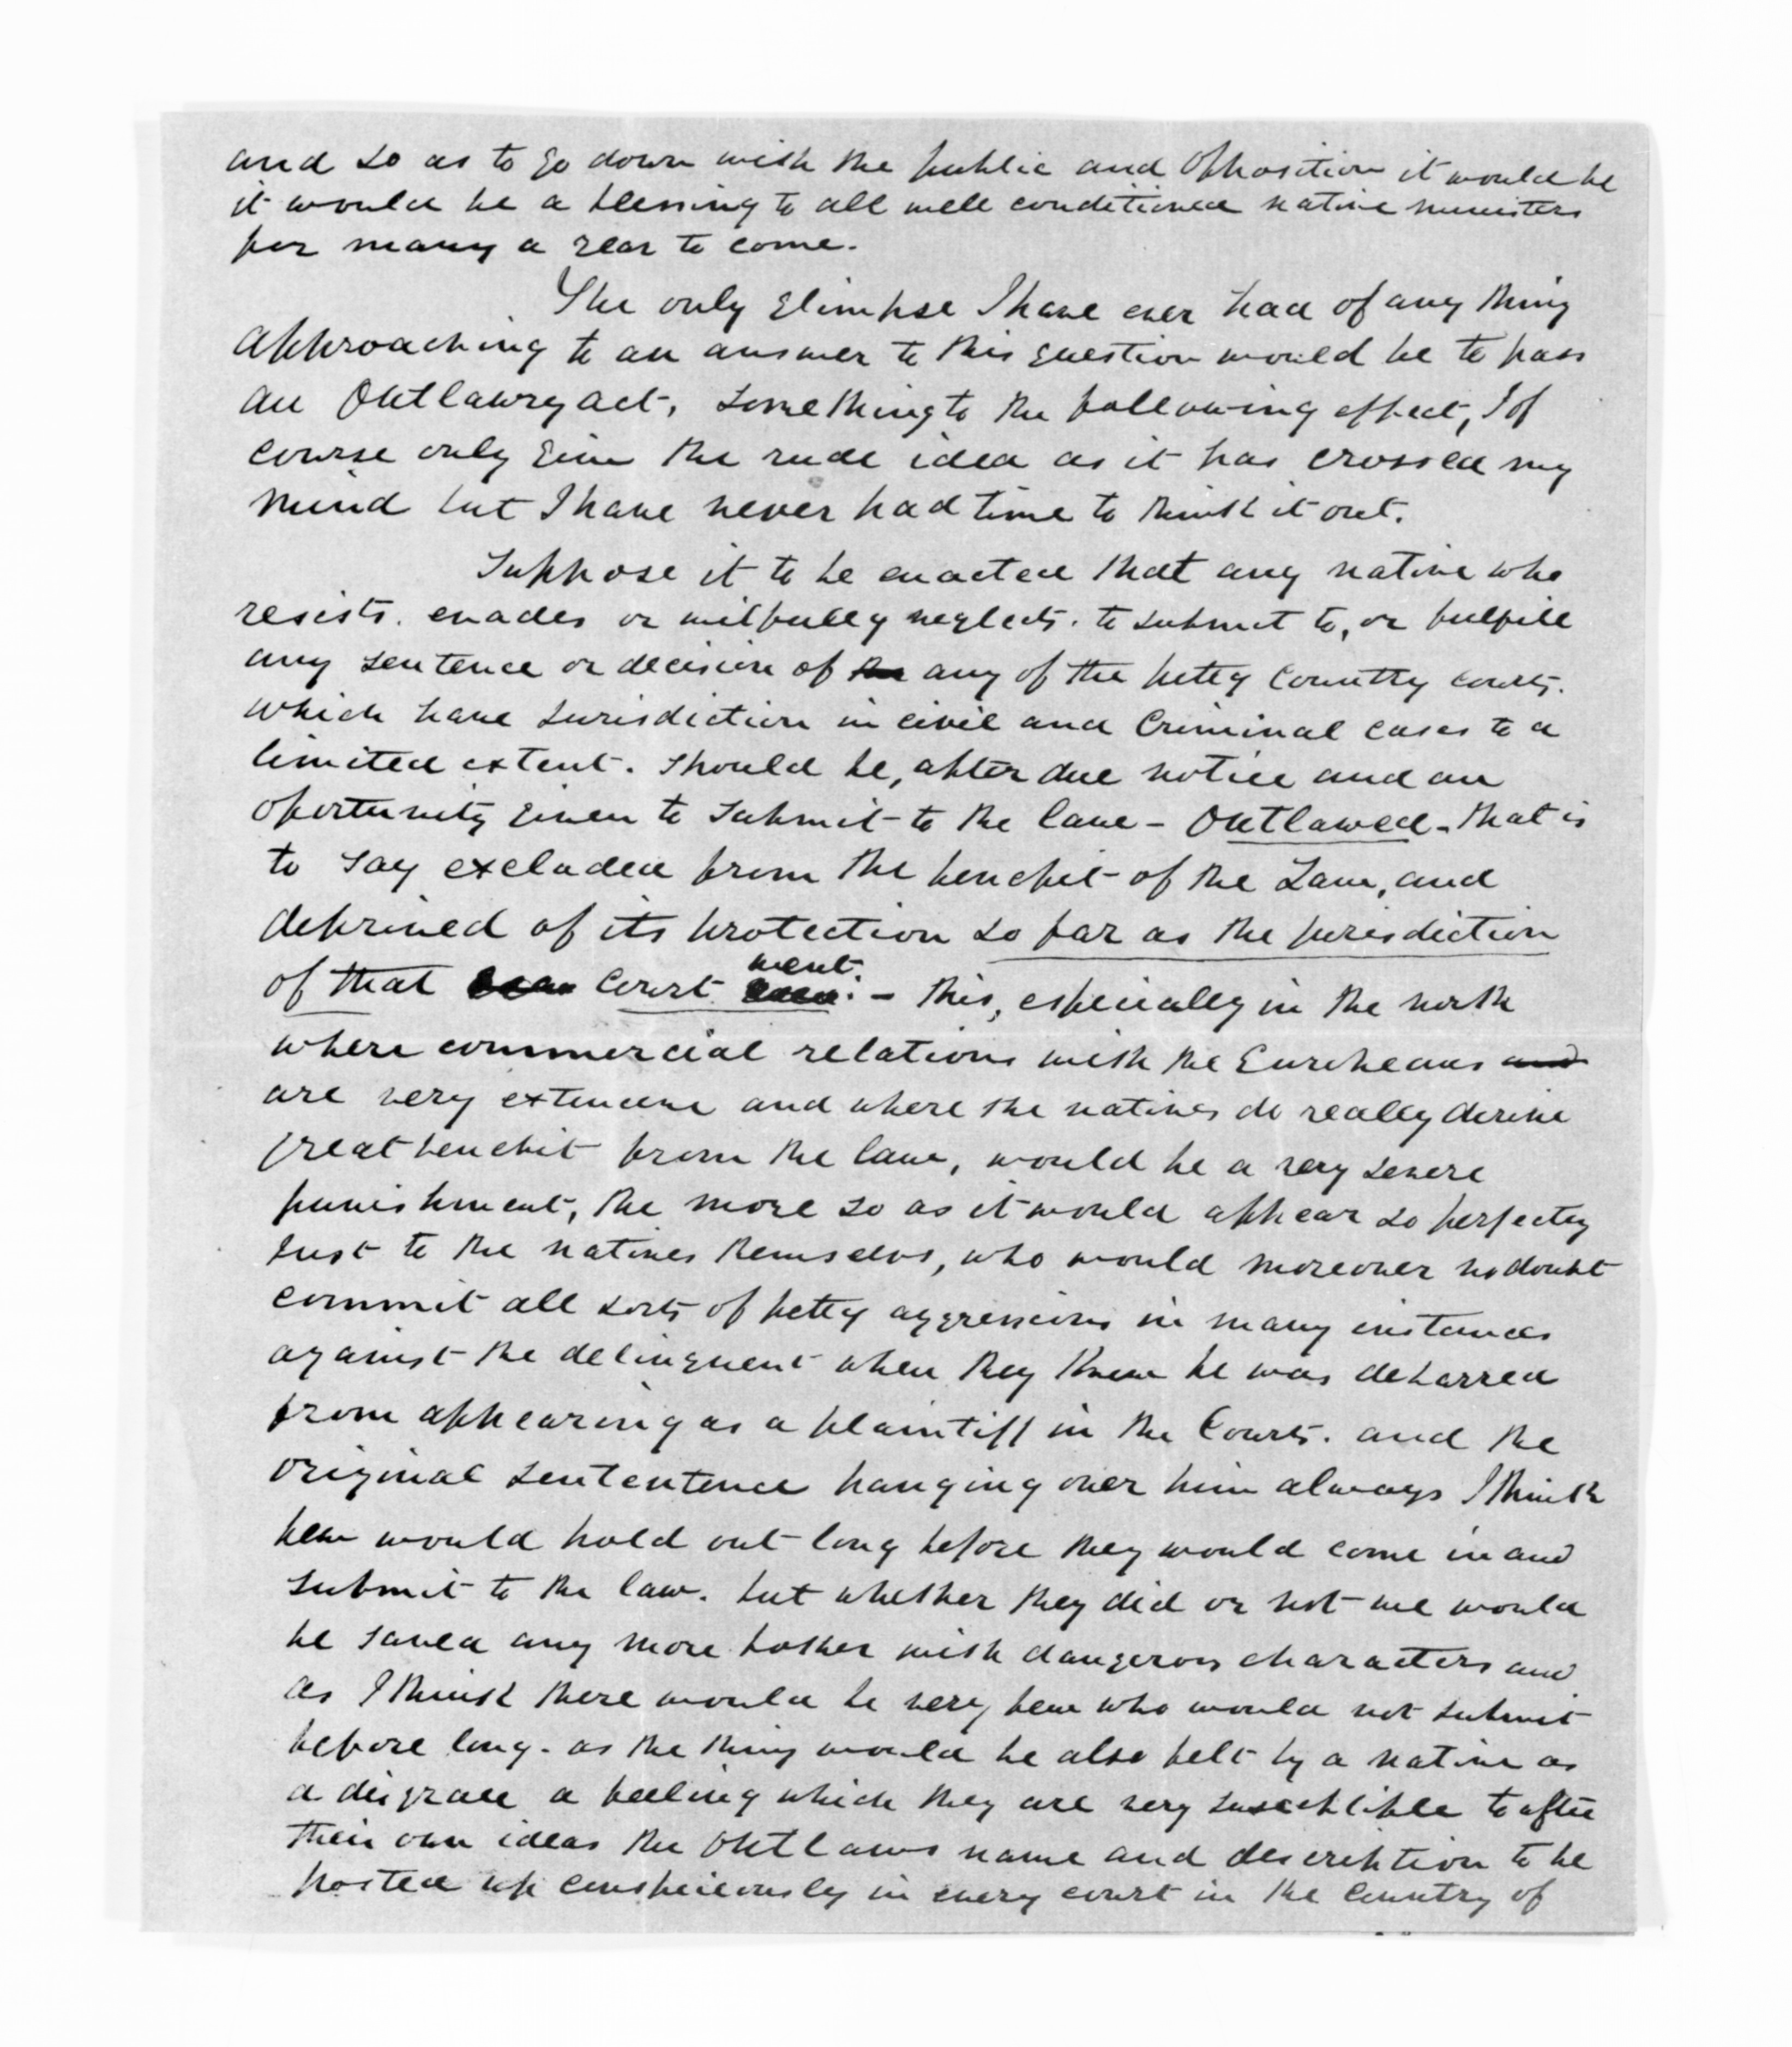 and so as to go down with the public and Opposition it would be
it would be a blessing to all well conditioned native ministers
for many a year to come.
The only glimpse I have ever had of any thing
approaching to an answer to this question would be to pass
an Outlawry act, something to the following effect, I of
course only give the rude idea as it has crossed my
mind but I have never had time to think it out.
Suppose it to be enacted that any native who
resists. evades or wilfully neglects. to submit to, or fulfill
any sentence or decision of the any of the petty Country courts.
which have Jurisdiction in civil and Criminal cases to a
limited extent. Should be, after due notice and an
oportunity given to submit to the law - Outlawed - that is
to say excluded from the benefit of the Law, and
deprived of its protection so far as the jurisdiction
of that Court went. - this, especially in the north
where commercial relations with the Europeans and
are very extensive and where the natives do really derive
great benefit from the law, would be a very severe
punishment, the more so as it would appear so perfectly
Just to the natives themselvs, who would moreover no doubt
commit all sorts of petty aggressions in many instances
against the delinquent when they knew he was debarred
from appearing as a plaintiff in the Courts. and the
original sententence hanging over him always I think
few would hold out long before they would come in and
submit to the law. but whether they did or not we would
be saved any more bother with dangerous characters and
as I think there would be very few who would not submit
before long. as the thing would be also felt by a native as
a disgrace a feeling which they are very suseptible to after
their own ideas the Outlaws name and description to be
posted up conspicuously in every court in the Country of